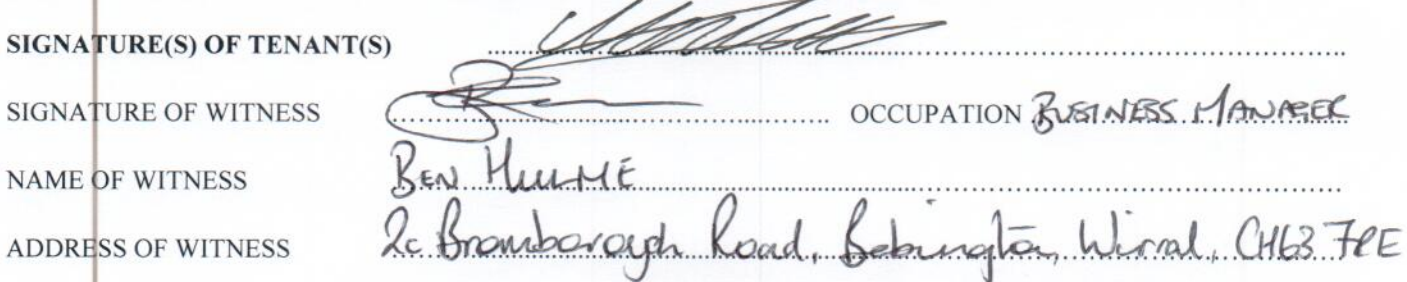 SIGNATURE(S) OF TENANT(S)
SIGNATURE OF WITNESS OCCUPATION BUSINESS MANAGER
NAME OF WITNESS BEN HULME
ADDRESS OF WITNESS 2c Bromborough Road, Bebington, Wirral, CH63 7RE